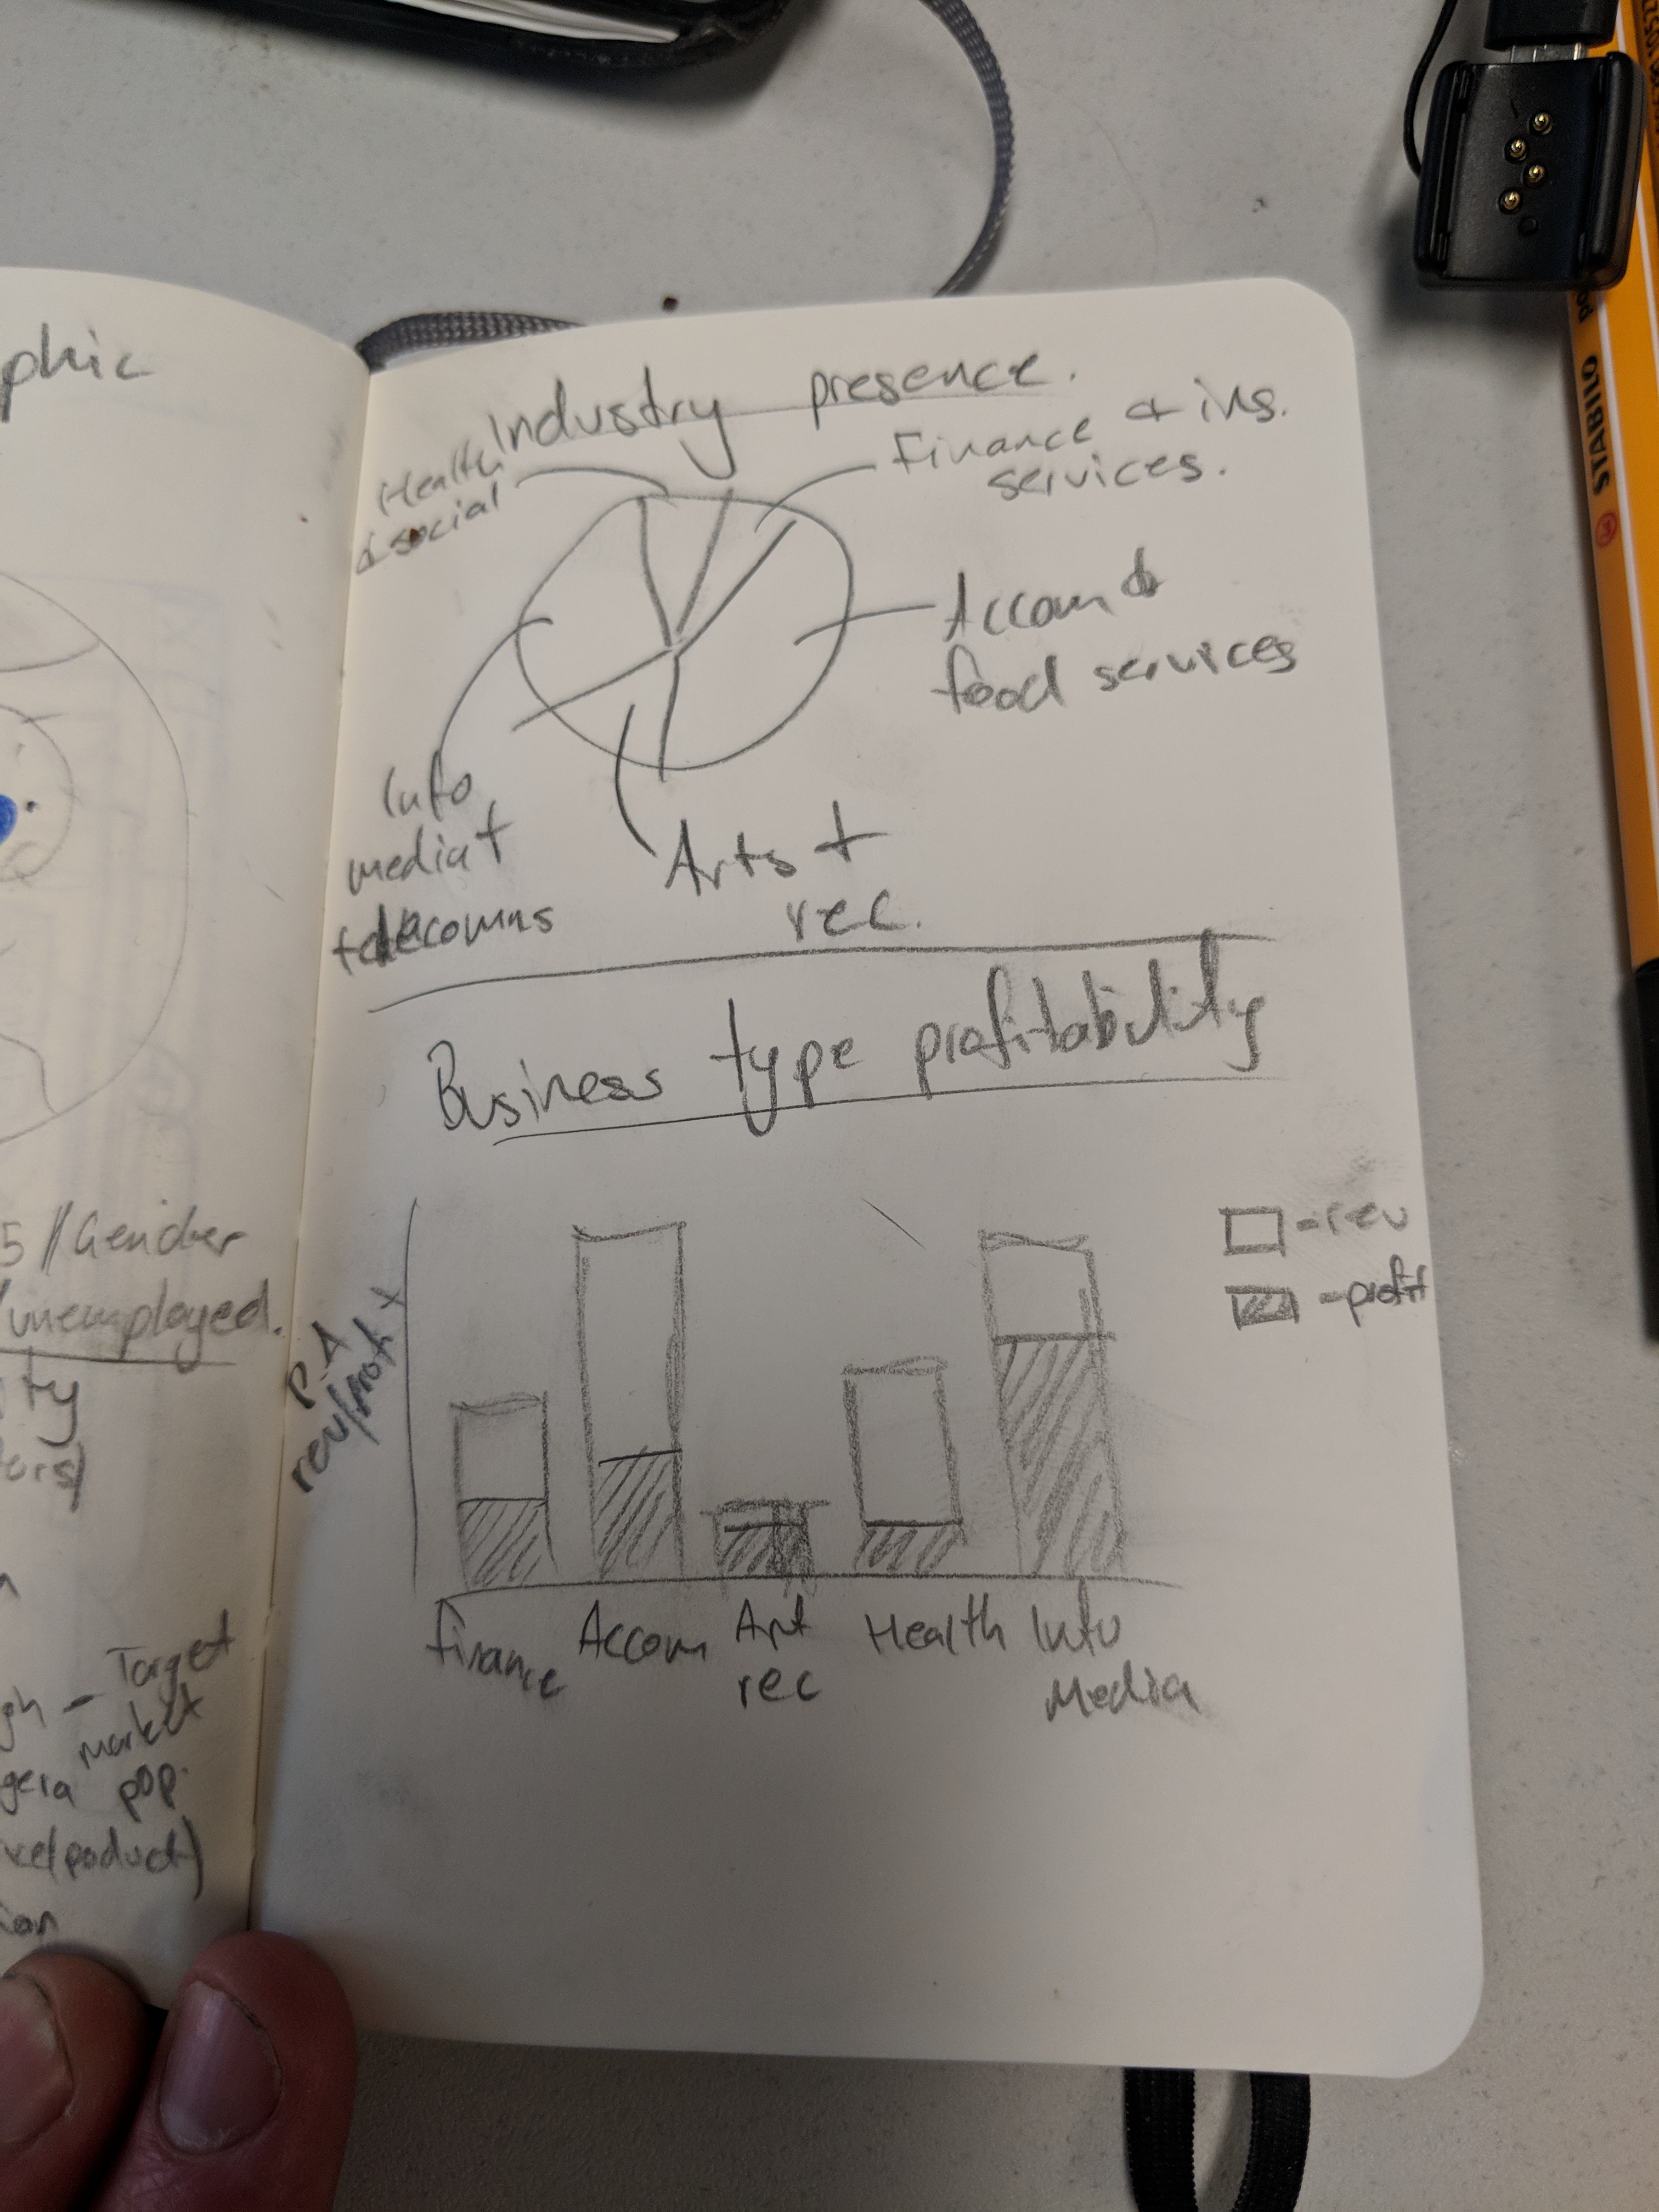 phic
5 / Gender
/unemployed.
ty
ors)
gh - Target
market
gera pop.
ice/poduct)
ion
Industry presence.
Health
& social
Finance & ins.
services.
Accom &
food services
Info
media +
telecomms
Arts +
rec.
Business type profitability
P.A
rev/prof
- rev
- profit
finance
Accom
Art
rec
Health
Info
Media
STABILO